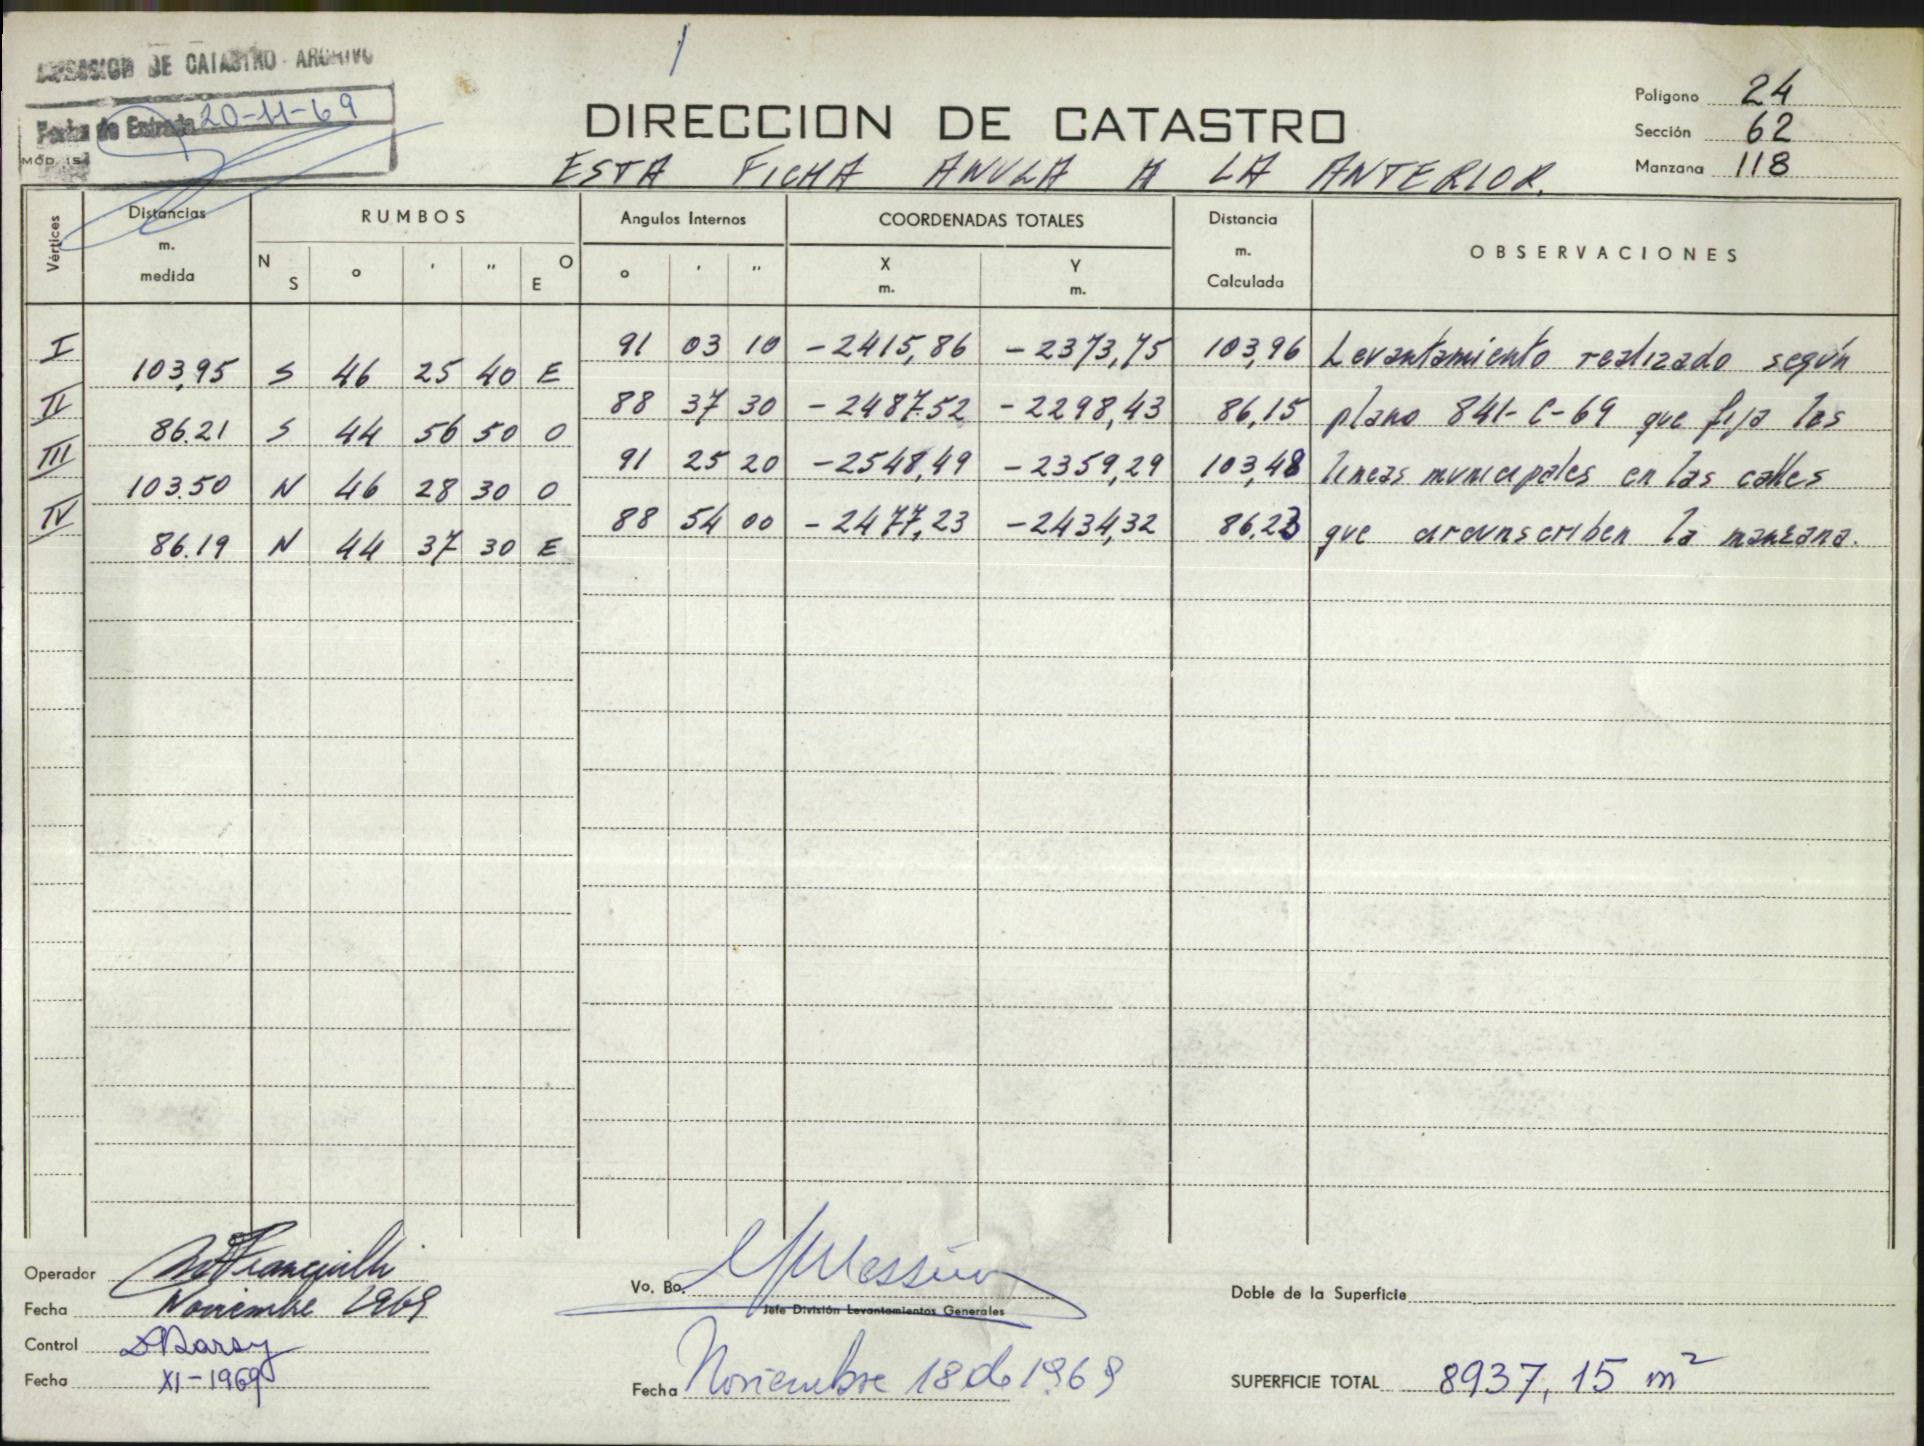 DIVISION DE CATASTRO - ARCHIVO
Fecha de Entrada 20-11-69
MOD. 154
1
DIRECCION DE CATASTRO
ESTA FICHA ANULA A LA ANTERIOR.
Polígono 24
Sección 62
Manzana 118
Vértices
Distancias m. medida
RUMBOS
N S ° ' " O E
Angulos Internos
° ' "
COORDENADAS TOTALES
X m. Y m.
Distancia m. Calculada
OBSERVACIONES
I 91 03 10 -2415,86 -2373,75 103,96 Levantamiento realizado según
103,95 S 46 25 40 E
II 88 37 30 -2487.52 -2298,43 86,15 plano 841-C-69 que fija las
86.21 S 44 56 50 O
III 91 25 20 -2548,49 -2359,29 103,48 lineas municipales en las calles
103.50 N 46 28 30 O
IV 88 54 00 -2477,23 -2434,32 86,23 que circunscriben la manzana.
86.19 N 44 37 30 E
Operador
Fecha Noviembre 1969
Control
Fecha XI-1969
Vo. Bo.
Jefe División Levantamientos Generales
Fecha Noviembre 18 de 1969
Doble de la Superficie
SUPERFICIE TOTAL 8937,15 m²